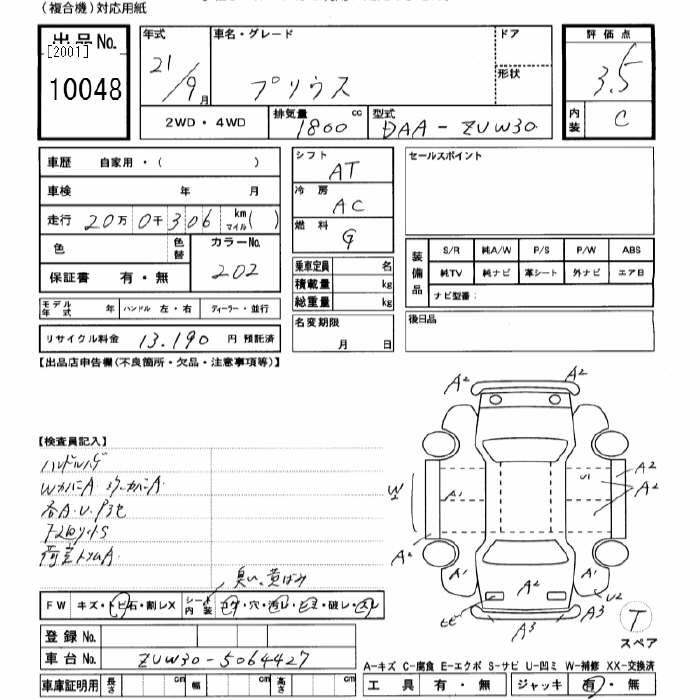 （複合機）対応用紙
出品No.
[2001]
10048
年式
21/9月
車名・グレード
プリウス
ドア
形状
評価点
3.5
内装
C
2WD・4WD
排気量
1800 cc
型式
DAA-ZVW30
車歴 自家用・( )
車検 年 月
走行 20万0千306 km マイル( )
色
色替
カラーNo.
202
保証書 有・無
モデル年式 年 ハンドル 左・右 ディーラー・並行
リサイクル料金 13,190 円 預託済
シフト
AT
冷房
AC
燃料
G
乗車定員 名
積載量 kg
総重量 kg
名変期限
月 日
セールスポイント
装備品
S/R 純A/W P/S P/W ABS
純TV 純ナビ 革シート 外ナビ エアB
ナビ型番：
後日品
【出品店申告欄(不良箇所・欠品・注意事項等)】
【検査員記入】
ハンドルハゲ
各A.U.
臭い、黄ばみ
FW キズ・トビ石・割レX シート内装 コゲ・穴・汚レ・シミ・破レ・スレ
登録No.
車台No. ZVW30-5064427
車庫証明用 長さ cm 幅 cm 高さ cm
A2
A2
A2
A2
W2
A1
U1
A2
A1
A1
U2
A2
A2
A3
A3
T
スペア
A-キズ C-腐食 E-エクボ S-サビ U-凹ミ W-補修 XX-交換済
工具 有・無 ジャッキ 有・無